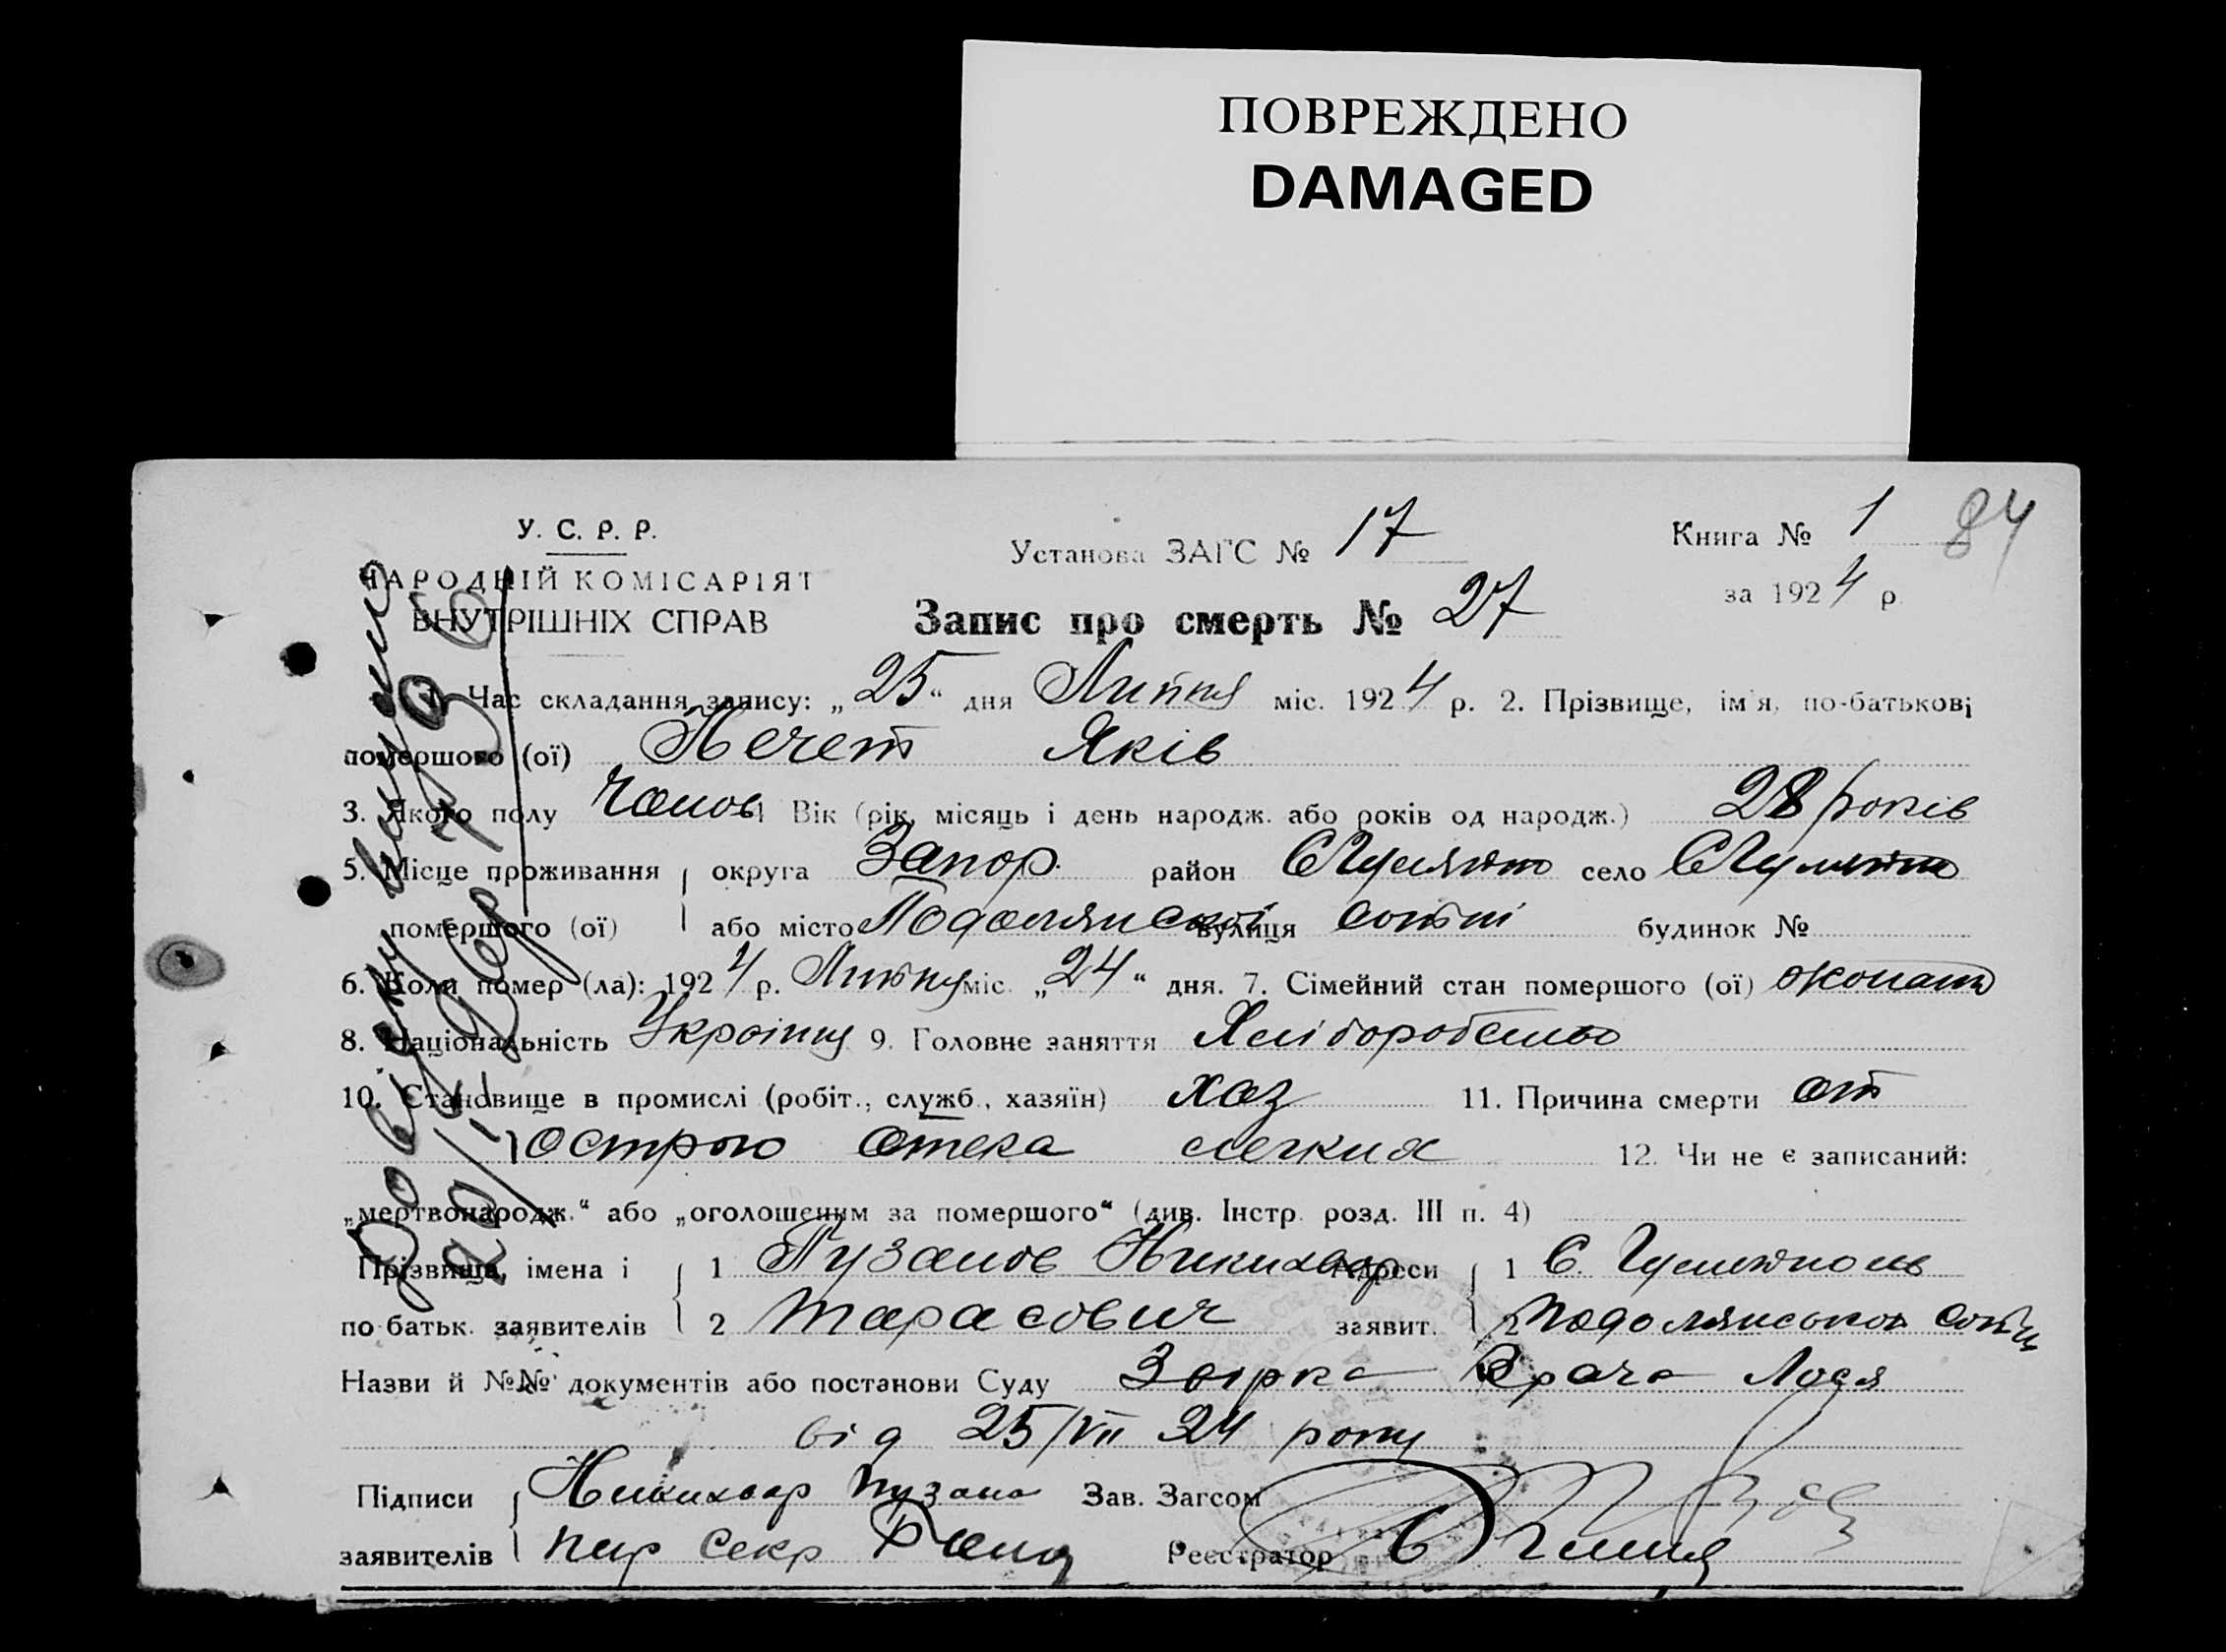 ПОВРЕЖДЕНО
DAMAGED
У. С. Р. Р.
НАРОДНІЙ КОМІСАРІЯТ
ВНУТРІШНІХ СПРАВ
Установа ЗАГС № 17
Книга № 1 84
за 1924 р.
Запис про смерть № 27
1. Час складання запису: „25“ дня Липня міс. 1924 р. 2. Прізвище, ім'я, по-батькові
помершого (ої) Нечет Яків
3. Якого полу Чолов 4 Вік (рік, місяць і день народж. або років од народж.) 28 років
5. Місце проживання округа Запор. район село
помершого (ої) або місто Подолянської вулиця сотні будинок №
6. Коли помер (ла): 1924 р. Липня міс. „24“ дня. 7. Сімейний стан помершого (ої) жонат
8. Національність Україньц 9. Головне заняття Хліборобство
10. Становище в промислі (робіт., служб., хазяїн) хаз 11. Причина смерти от
острого отека легких 12. Чи не є записаний:
„мертвонародж.“ або „оголошеним за помершого“ (див. Інстр. розд. III п. 4)
Прізвища, імена і 1 Пузанов Никихвор Адреси 1 С. Гуляйполь
по батьк. заявителів 2 Тарасович заявит. 2 Подолянськоі сотні
Назви й №№ документів або постанови Суду Врача
від 25/VII 24 року
Підписи Никихвор Пузано Зав. Загсом
заявителів Секр Реєстратор
Довідку